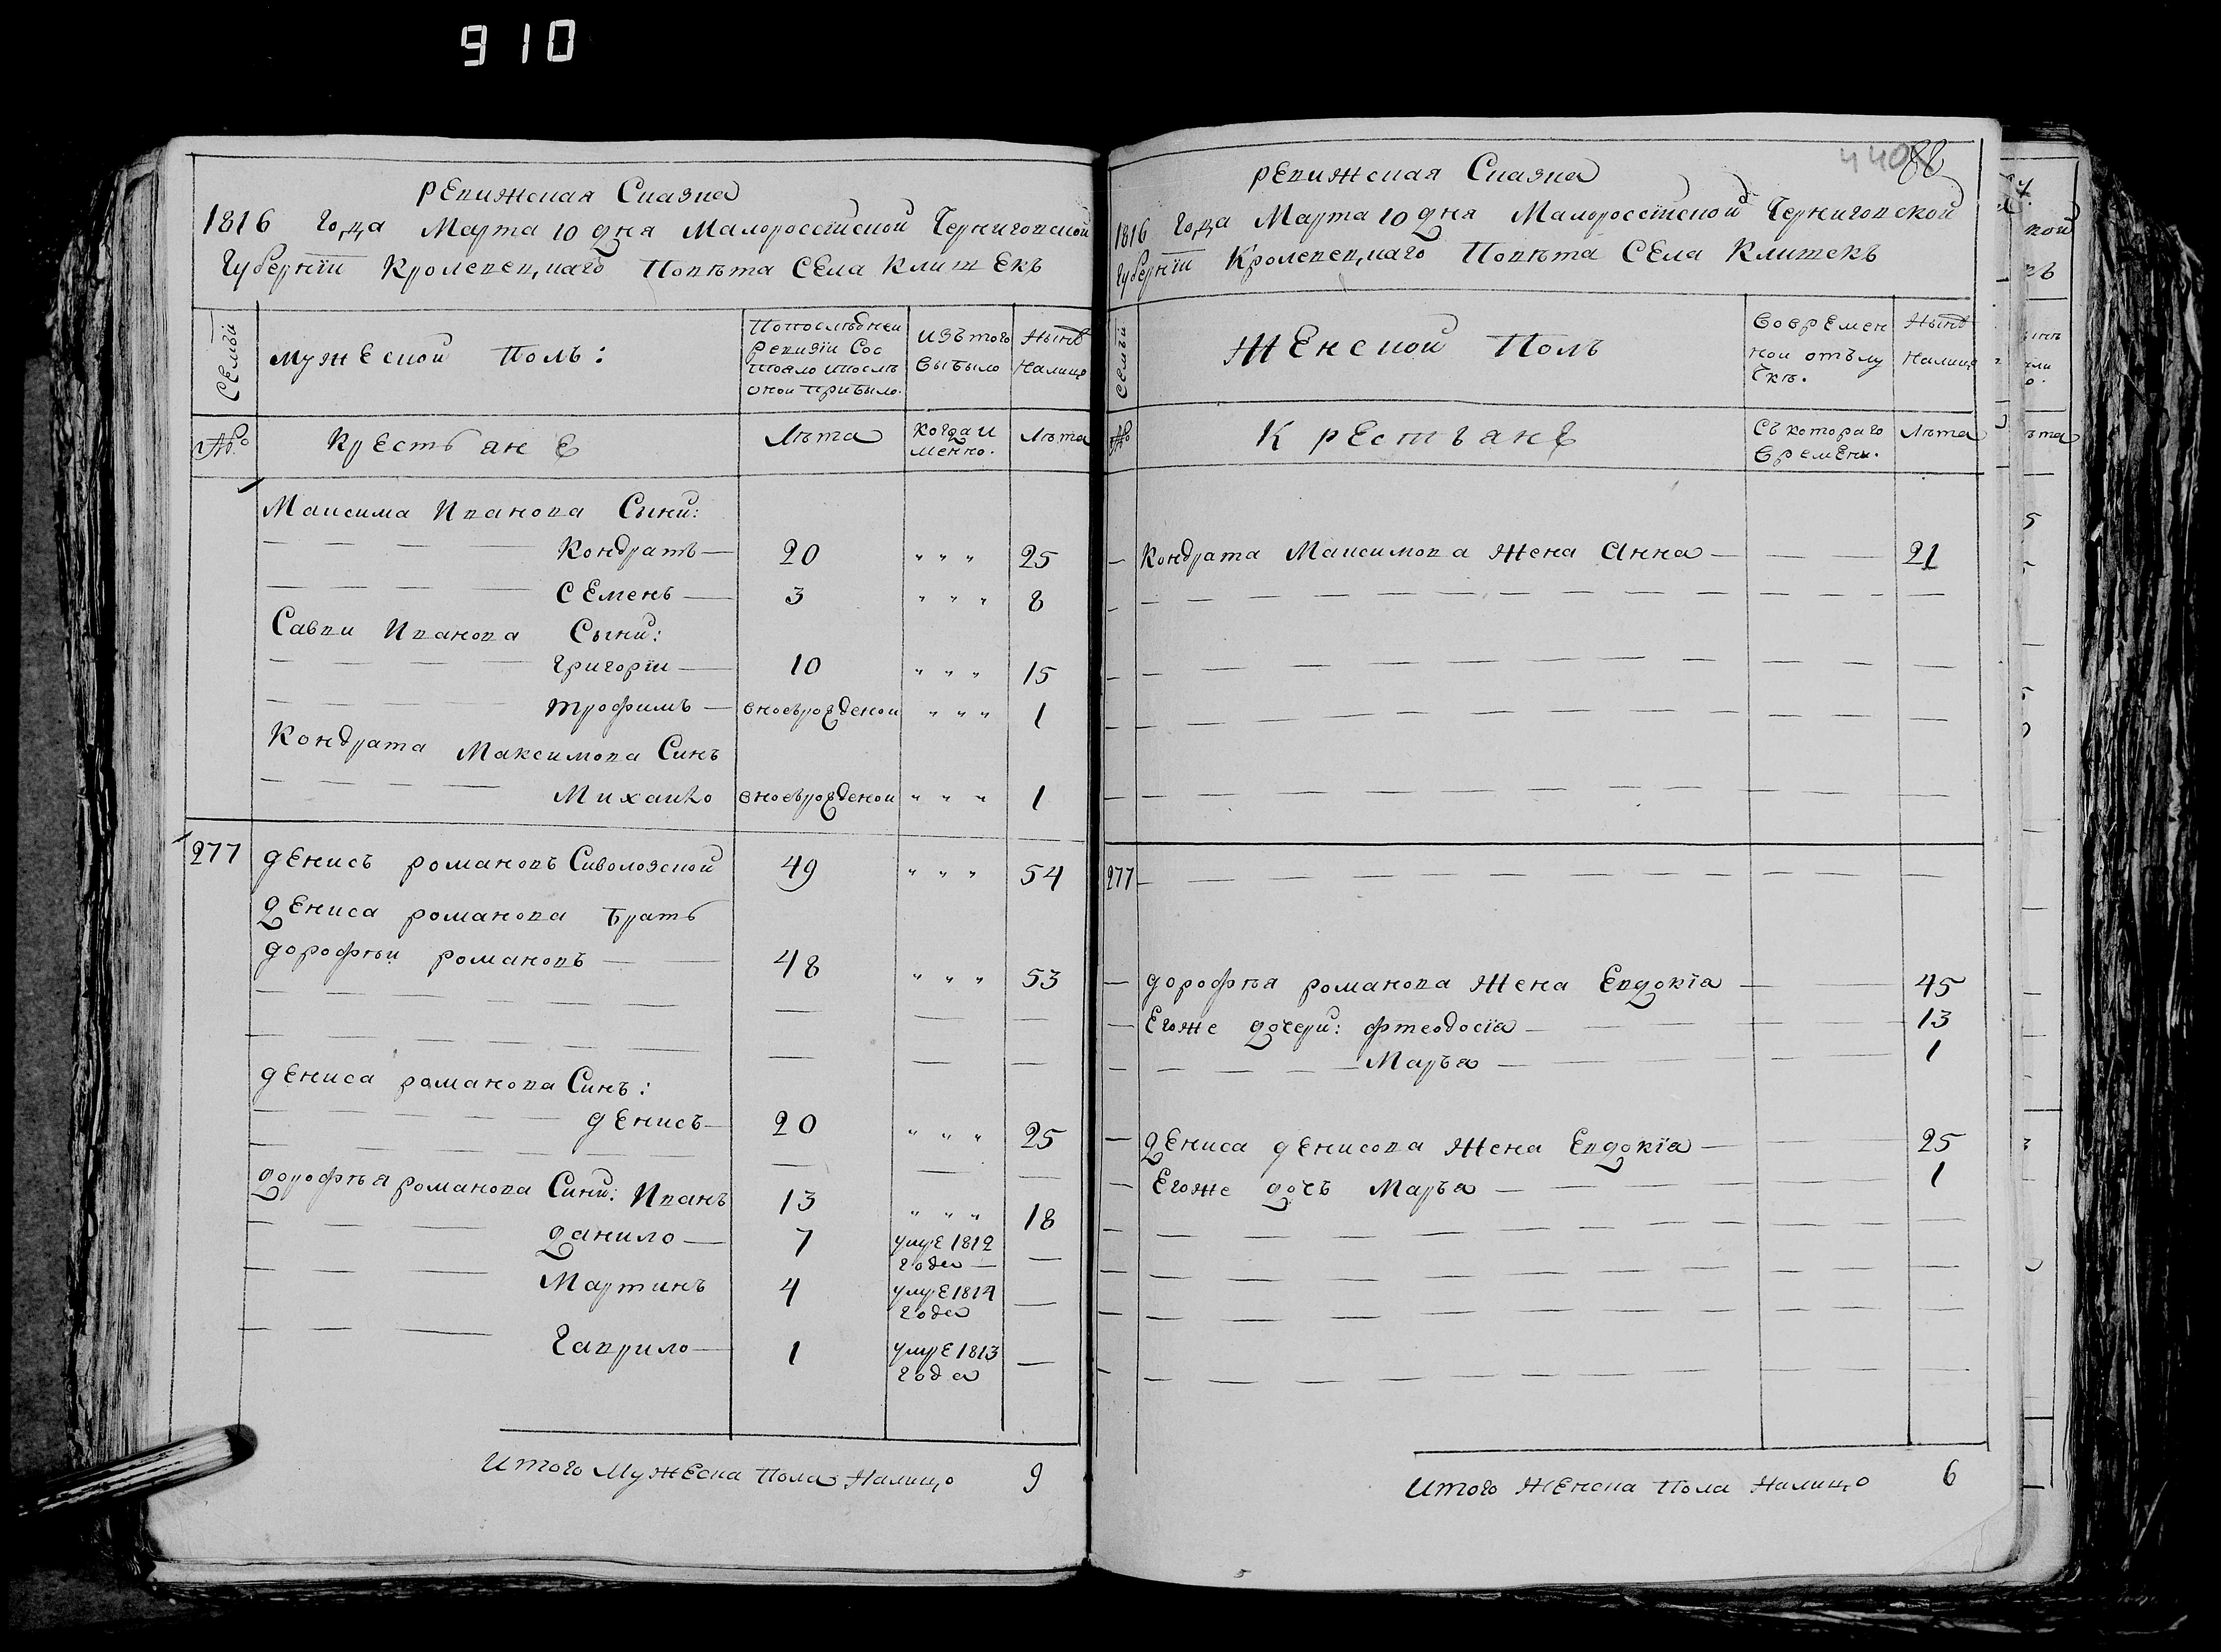 910
ревижская Сказка
1816 года Марта 10 дня Малороссійской Черниговской
Губерніи Кролевецкаго Повѣта Села Клишекъ
Семьи
мужеской Полъ:
Попослѣдней
ревизіи Сос
тояло ипослѣ
оной прибыло.
Изътого
выбыло
Нынѣ
Налице
№
Крестьяне
Лѣта
Когда и
менно.
Лѣта
Максима Иванова Сыни:
Кондратъ — 20 „ „ „ 25
Семенъ — 3 „ „ „ 8
Савви Иванова Сыни:
Григоріи — 10 „ „ „ 15
Трофимъ — вноворожденои „ „ „ 1
Кондрата Максимова Синъ
Михайло вноворожденои „ „ „ 1
277 Денисъ романовъ Сиволозской 49 „ „ „ 54
Дениса романова братъ
Дорофѣи романовъ — — 48 „ „ „ 53
Дениса романова Синъ:
Денисъ — 20 „ „ „ 25
Дорофѣя романова Сини: Иванъ 13 „ „ „ 18
Данило — 7 умре 1812 —
года —
Мартинъ 4 умре 1814 —
года
Гаврило — 1 умре 1813 —
года
Итого Мужеска Пола Налицо 9
440 88
ревижская Сказка
1816 года Марта 10 дня Малороссійской Черниговской
Губерніи Кролевецкаго Повѣта Села Клишекъ
Семьи
Женской Полъ
Вовремен
ной отълу
чкѣ.
Нынѣ
Налице
№
Крестьяне
Съ котораго
времени.
Лѣта
— Кондрата Максимова Жена Анна — — — 21
277
— Дорофѣя романова Жена Евдокіа — — 45
— Егоже дочери: Фтеодосіа — — 13
Марья — — 1
— Дениса Денисова Жена Евдокіа — — 25
— Егоже дочь Марья — — 1
Итого Женска Пола Налицо 6